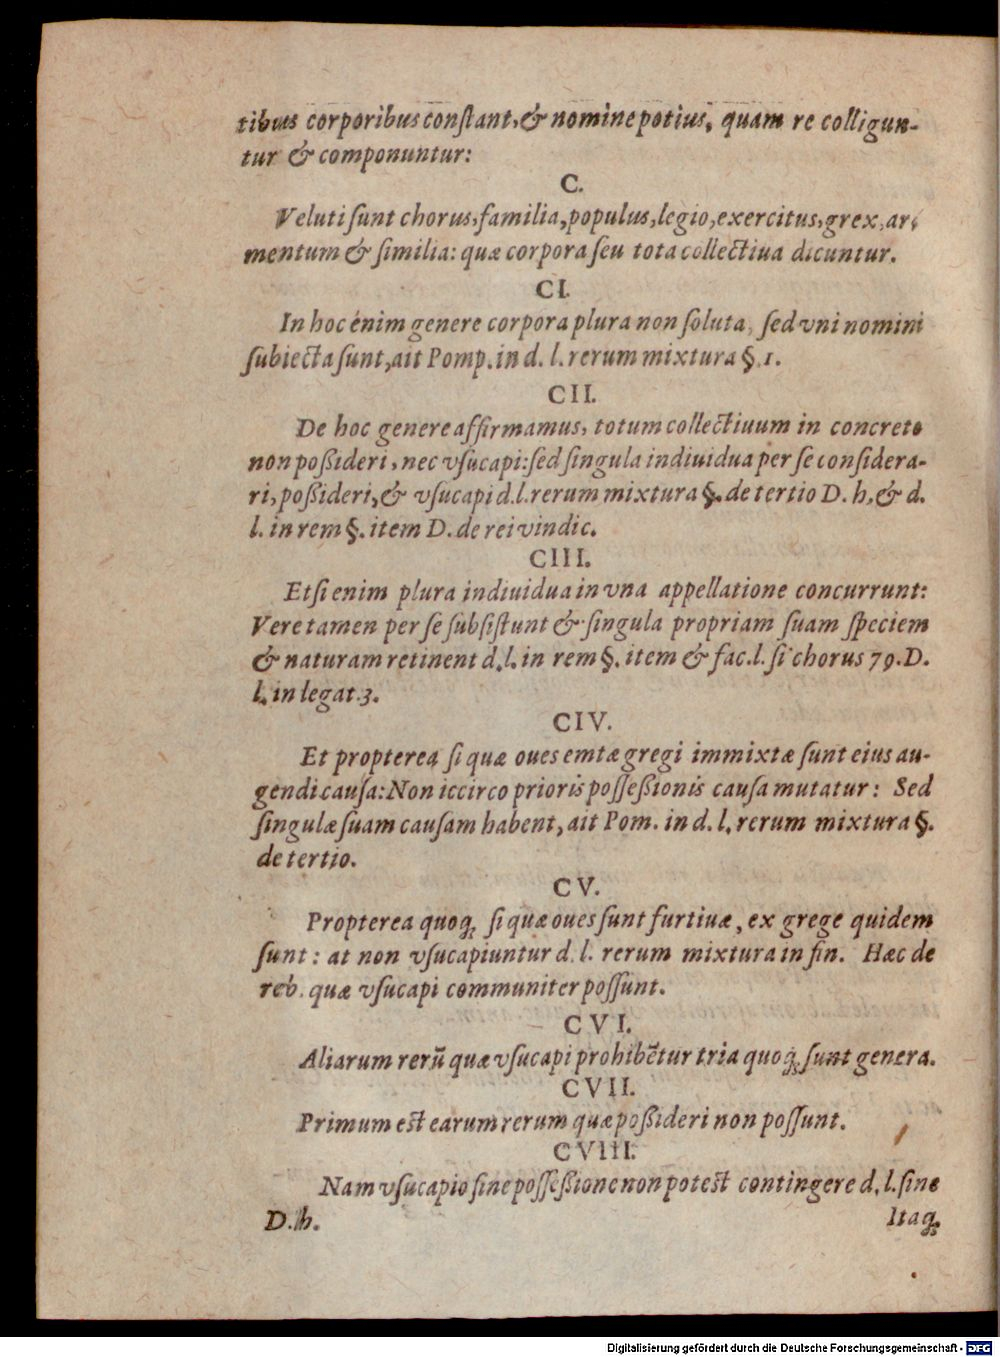 tibus corporibus conſtant, & nomine potius, quam re colligun-
tur & componuntur:
C.
Veluti ſunt chorus, familia, populus, legio, exercitus, grex, ar-
mentum & ſimilia: quæ corpora ſeu tota collectiua dicuntur.
CI.
In hoc énim genere corpora plura non ſoluta, ſed vni nomini
ſubiecta ſunt, ait Pomp. in d. l. rerum mixtura §. 1.
CII.
De hoc genere affirmamus, totum collectiuum in concreto
non poßideri, nec vſucapi: ſed ſingula indiuidua per ſe conſidera-
ri, poßideri, & vſucapi d. l. rerum mixtura §. de tertio D. h. & d.
l. in rem §. item D. de rei vindic.
CIII.
Etſi enim plura indiuidua in vna appellatione concurrunt:
Vere tamen per ſe ſubſiſtunt & ſingula propriam ſuam ſpeciem
& naturam retinent d. l. in rem §. item & fac. l. ſi chorus 79. D.
l. in legat. 3.
CIV.
Et propterea ſi quæ oues emtæ gregi immixtæ ſunt eius au-
gendi cauſa: Non iccirco prioris poſſeßionis cauſa mutatur: Sed
ſingulæ ſuam cauſam habent, ait Pom. in d. l. rerum mixtura §.
de tertio.
CV.
Propterea quoq; ſi quæ oues ſunt furtiuæ, ex grege quidem
ſunt: at non vſucapiuntur d. l. rerum mixtura in fin. Hæc de
reb. quæ vſucapi communiter poſſunt.
CVI.
Aliarum rerū quæ vſucapi prohibētur tria quoq; ſunt genera.
CVII.
Primum est earum rerum quæ poßideri non poſſunt.
CVIII.
Nam vſucapio ſine poſſeßione non potest contingere d. l. ſine
D. h.
Itaq;
Digitalisierung gefördert durch die Deutsche Forschungsgemeinschaft - DFG